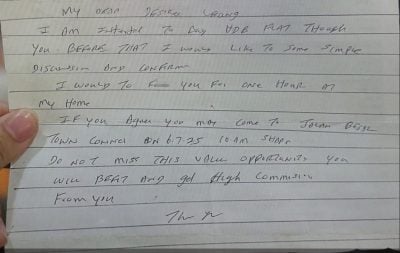 My DEAR DESIREE
I AM INTENTED To Buy HDB FLAT THOUGH
You BEFORE THAT I WOULD LIKE To Some SIMPLE
DISCUSSION AND CONFIRM
I WOULD To You FOR ONE HOUR AT
My HOME
IF you AGREE you MAY COME To
TOWN ON 6.7.25 10 AM SHARP
DO NOT MISS THIS VALUE OPPORTUNITY you
WILL AND got High COMMISION
FROM you